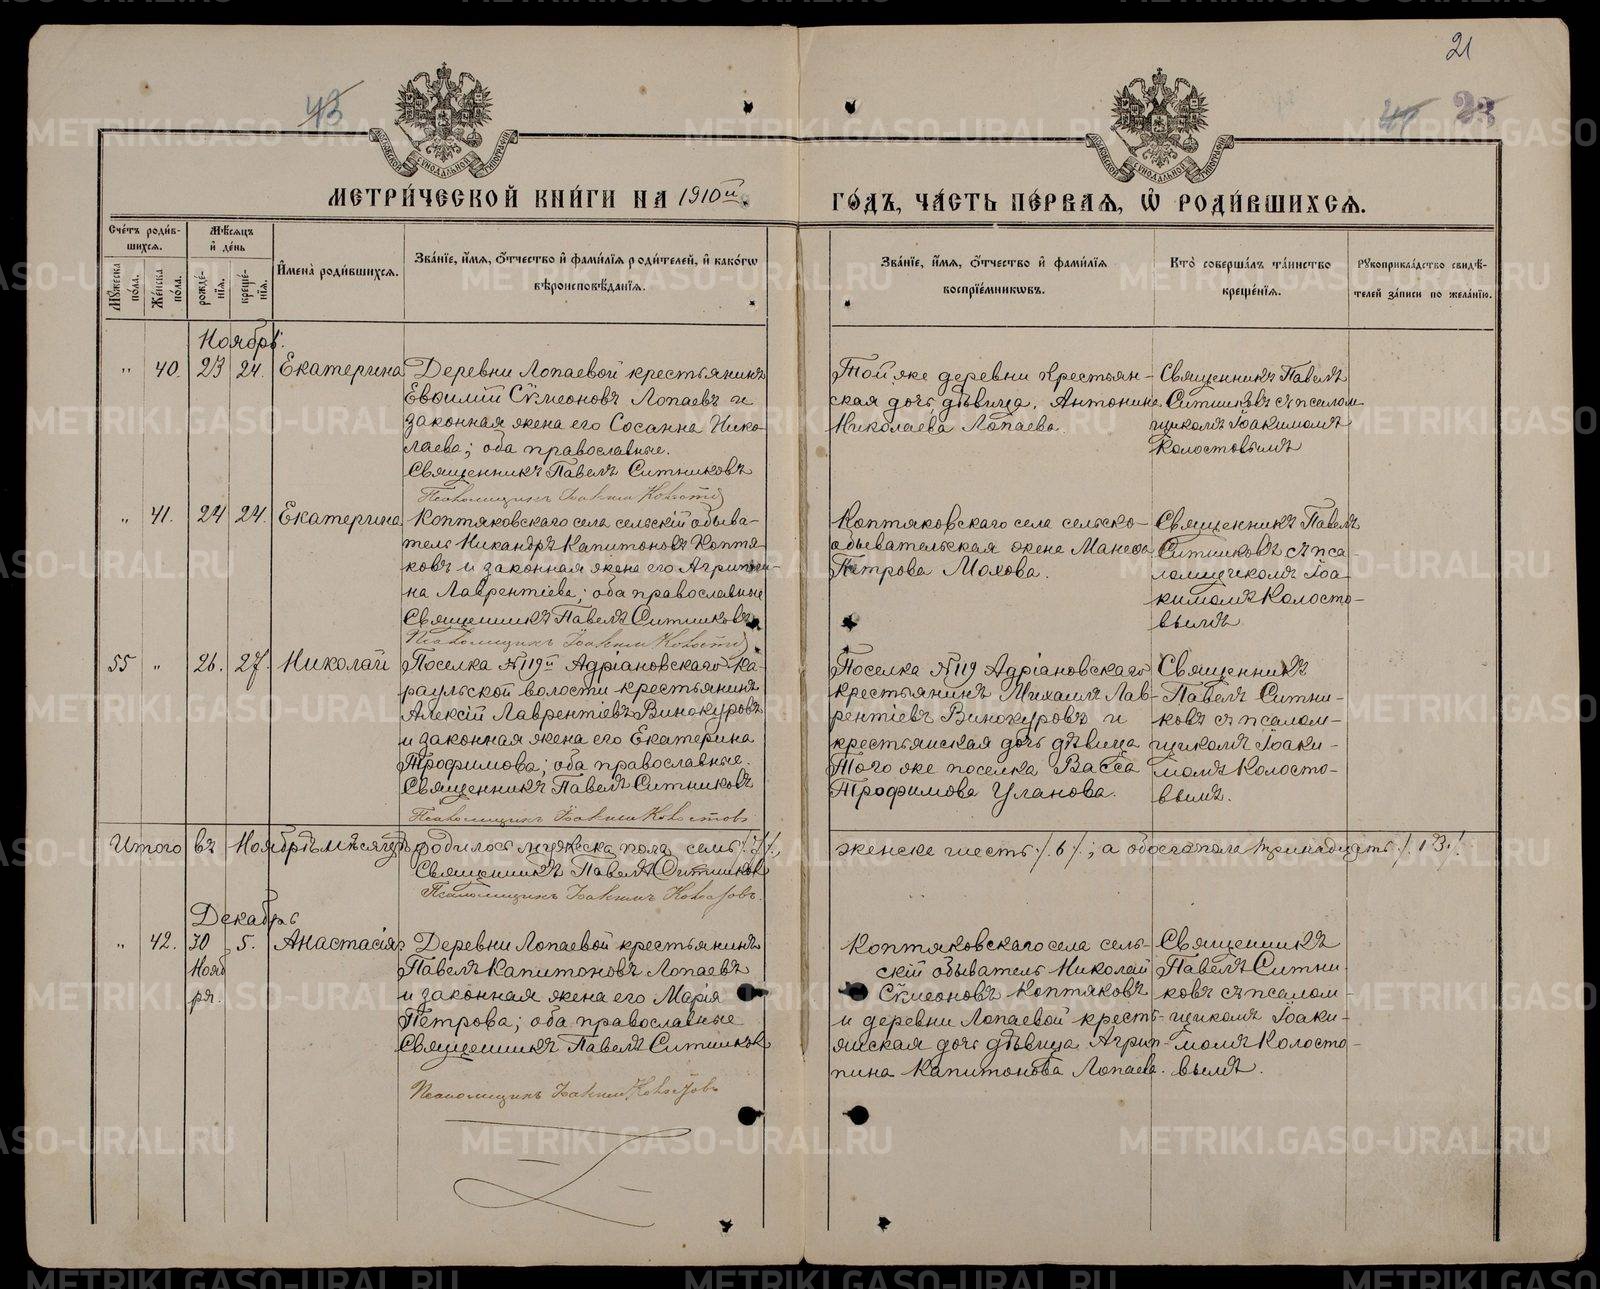 21
43
23
МЕТРИ́ЧЕСКОЙ КНИ́ГИ НА 1910й
ГО́ДЪ, ЧА́СТЬ ПЕ́РВАѦ, Ѡ҆ РОДИ́ВШИХСѦ.
Сче́тъ роди́в-
шихсѧ.
Мꙋ́жеска по́ла.
Же́нска по́ла.
Мѣ́сѧцъ
и҆ де́нь
рожде́-
нїѧ.
креще́-
нїѧ.
И҆мена̀ роди́вшихсѧ.
Зва́нїе, и҆́мѧ, ѻ҆́тчество и҆ фами́лїѧ роди́телей, и҆ како́гѡ
вѣроисповѣ́данїѧ.
Зва́нїе, и҆́мѧ, ѻ҆́тчество и҆ фами́лїѧ
воспрїе́мникѡвъ.
Кто̀ соверша́лъ та́инство
креще́нїѧ.
Рꙋкоприкла́дство свидѣ́-
телей за́писи по жела́нїю.
Ноябрь.
" 40. 23 24. Екатерина
Деревни Лопаевой крестьянинъ
Евѳимій Сѵмеоновъ Лопаевъ и
законная жена его Сосанна Нико-
лаева; оба православные.
Священникъ Павелъ Ситниковъ
Псаломщикъ Іоакимъ Колостов
Той же деревни крестьян-
ская дочь дѣвица, Антонина
Николаева Лопаева.
Священникъ Павелъ
Ситниковъ съ псалом
щикомъ Іоакимомъ
Колостовымъ
" 41. 24 24. Екатерина
Коптяковскаго села сельскій обыва-
тель Никандръ Капитоновъ Коптя-
ковъ и законная жена его Агриппи-
на Лаврентіева; оба православные
Священникъ Павелъ Ситниковъ
Псаломщикъ Іоакимъ Колостов
Коптяковскаго села сельско-
обывательская жена Манефа
Петрова Мохова.
Священникъ Павелъ
Ситниковъ съ пса-
ломщикомъ Іоа-
кимомъ Колосто-
вымъ
55 " 26. 27. Николай
Поселка №119й Адріановскаго Ка-
раульской волости крестьянинъ
Алексій Лаврентіевъ Винокуровъ
и законная жена его Екатерина
Трофимова; оба православные.
Священникъ Павелъ Ситниковъ
Псаломщикъ Іоакимъ Колостовъ
Поселка №119 Адріановскаго
крестьянинъ Михаилъ Лав-
рентіевъ Винокуровъ и
крестьянская дочь дѣвица
Того же поселка Васса
Трофимова Уланова.
Священникъ
Павелъ Ситни-
ковъ съ псалом-
щикомъ Іоаки-
момъ Колосто-
вымъ.
Итого въ Ноябрѣ мѣсяцѣ родилось мужеска пола семь /.7./,
женска шесть /.6./; а обоего пола тринадцать /.13./.
Священникъ Павелъ Ситников
Псаломщикъ Іоакимъ Колостовъ.
Декабрь
" 42. 30 5. Анастасія
Нояб
ря.
Деревни Лопаевой крестьянинъ
Павелъ Капитоновъ Лопаевъ
и законная жена его Марія
Петрова; оба православные
Священникъ Павелъ Ситников
Псаломщикъ Іоакимъ Колостовъ
Коптяковскаго села сель-
скій обыватель Николай
Сѵмеоновъ Коптяковъ
и деревни Лопаевой кресть-
янская дочь дѣвица Агрип-
пина Капитонова Лопаева.
Священникъ
Павелъ Ситни
ковъ съ псалом-
щикомъ Іоаки-
момъ Колосто-
вымъ.
METRIKI.GASO-URAL.RU